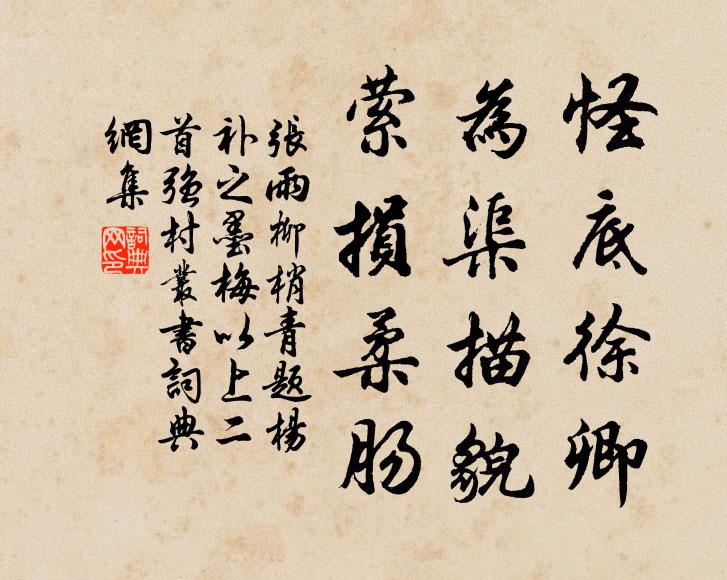 怪底徐卿
為渠描貌
萦損柔肠
張雨柳梢青題楊
补之墨梅以上二
首強村叢書詞典
網集
詞典網印